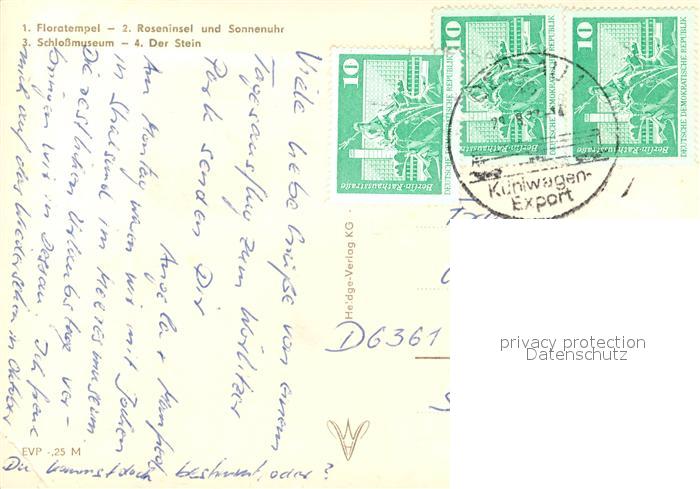 1. Floratempel – 2. Roseninsel und Sonnenuhr
3. Schloßmuseum – 4. Der Stein
Viele liebe Grüße von einem
Tagesausflug zum Wörlitzer
Park senden Dir
Angela + Manfred
Am Montag waren wir mit Jochen
in Stralsund im Meeresmuseum
Die restlichen Urlaubstage ver-
bringen wir in Dessau. Ich freue
mich auf das Wiedersehen im Oktober
Du kommst doch bestimmt, oder?
EVP -,25 M
Heldge-Verlag KG
D6361
10
Berlin-Rathausstraße
DEUTSCHE DEMOKRATISCHE REPUBLIK
10
Berlin-Rathausstraße
DEUTSCHE DEMOKRATISCHE REPUBLIK
10
Berlin-Rathausstraße
DEUTSCHE DEMOKRATISCHE REPUBLIK
DESSAU 1
Kühlwagen-
Export
privacy protection
Datenschutz